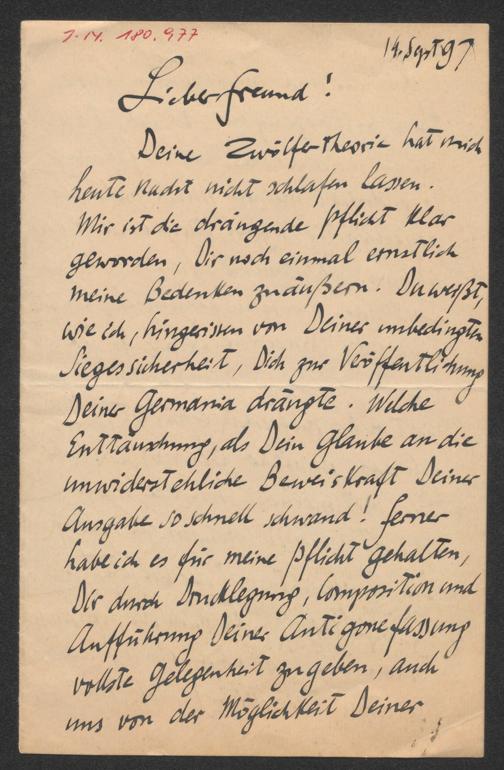 J.N. 180.977
14. Sept 97
Lieber Freund!
Deine Zwölfertheorie hat mich
heute Nacht nicht schlafen lassen.
Mir ist die drängende Pflicht klar
geworden, Dir noch einmal ernstlich
meine Bedenken zu äußern. Du weißt,
wie ich, hingerissen von Deiner unbedingten
Siegessicherheit, Dich zur Veröffentlichung
Deiner Germania drängte. Welche
Enttäuschung, als Dein Glaube an die
unwiderstehliche Beweiskraft Deiner
Ausgabe so schnell schwand! Ferner
habe ich es für meine Pflicht gehalten,
Dir durch Drucklegung, Composition und
Aufführung Deiner Antigonefassung
vollste Gelegenheit zu geben, auch
uns von der Möglichkeit Deiner